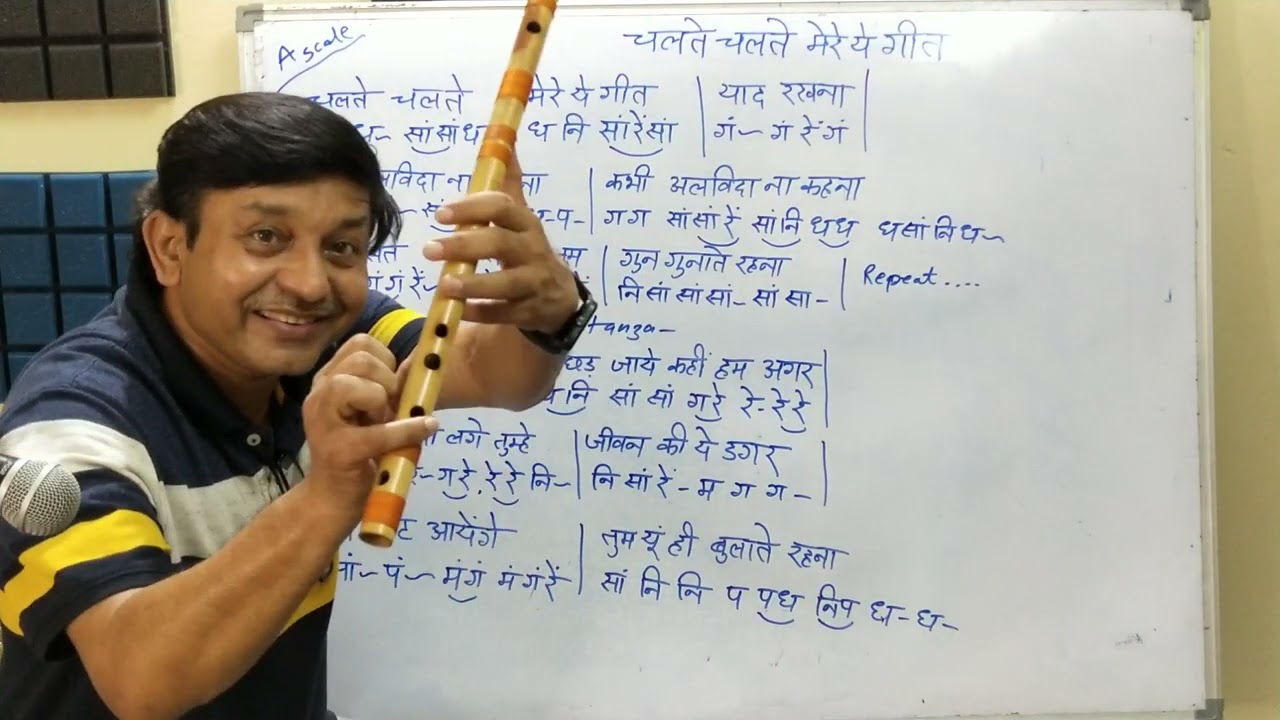 A scale
चलते चलते मेरे ये गीत
चलते चलते मेरे ये गीत | याद रखना |
सांसांध ध नि सांरेंसां | गं~ गं रें गं
ना | कभी अलविदा ना कहना
-प- | ग ग सांसांरें सांनि धध धसांनिध~
| गुन गुनाते रहना | Repeat....
गं गं रें- | नि सां सां सां- सां सा- |
जाये कहीं हम अगर |
नि सां सां ग रे रे-रेरे |
लगे तुम्हे | जीवन की ये डगर |
~गरे, रेरे नि~ | नि सां रें - म ग ग - |
आयेंगे | तुम यूं ही बुलाते रहना
~ पं~ मंगं मं गं रें | सां नि नि प पध निप ध-ध-